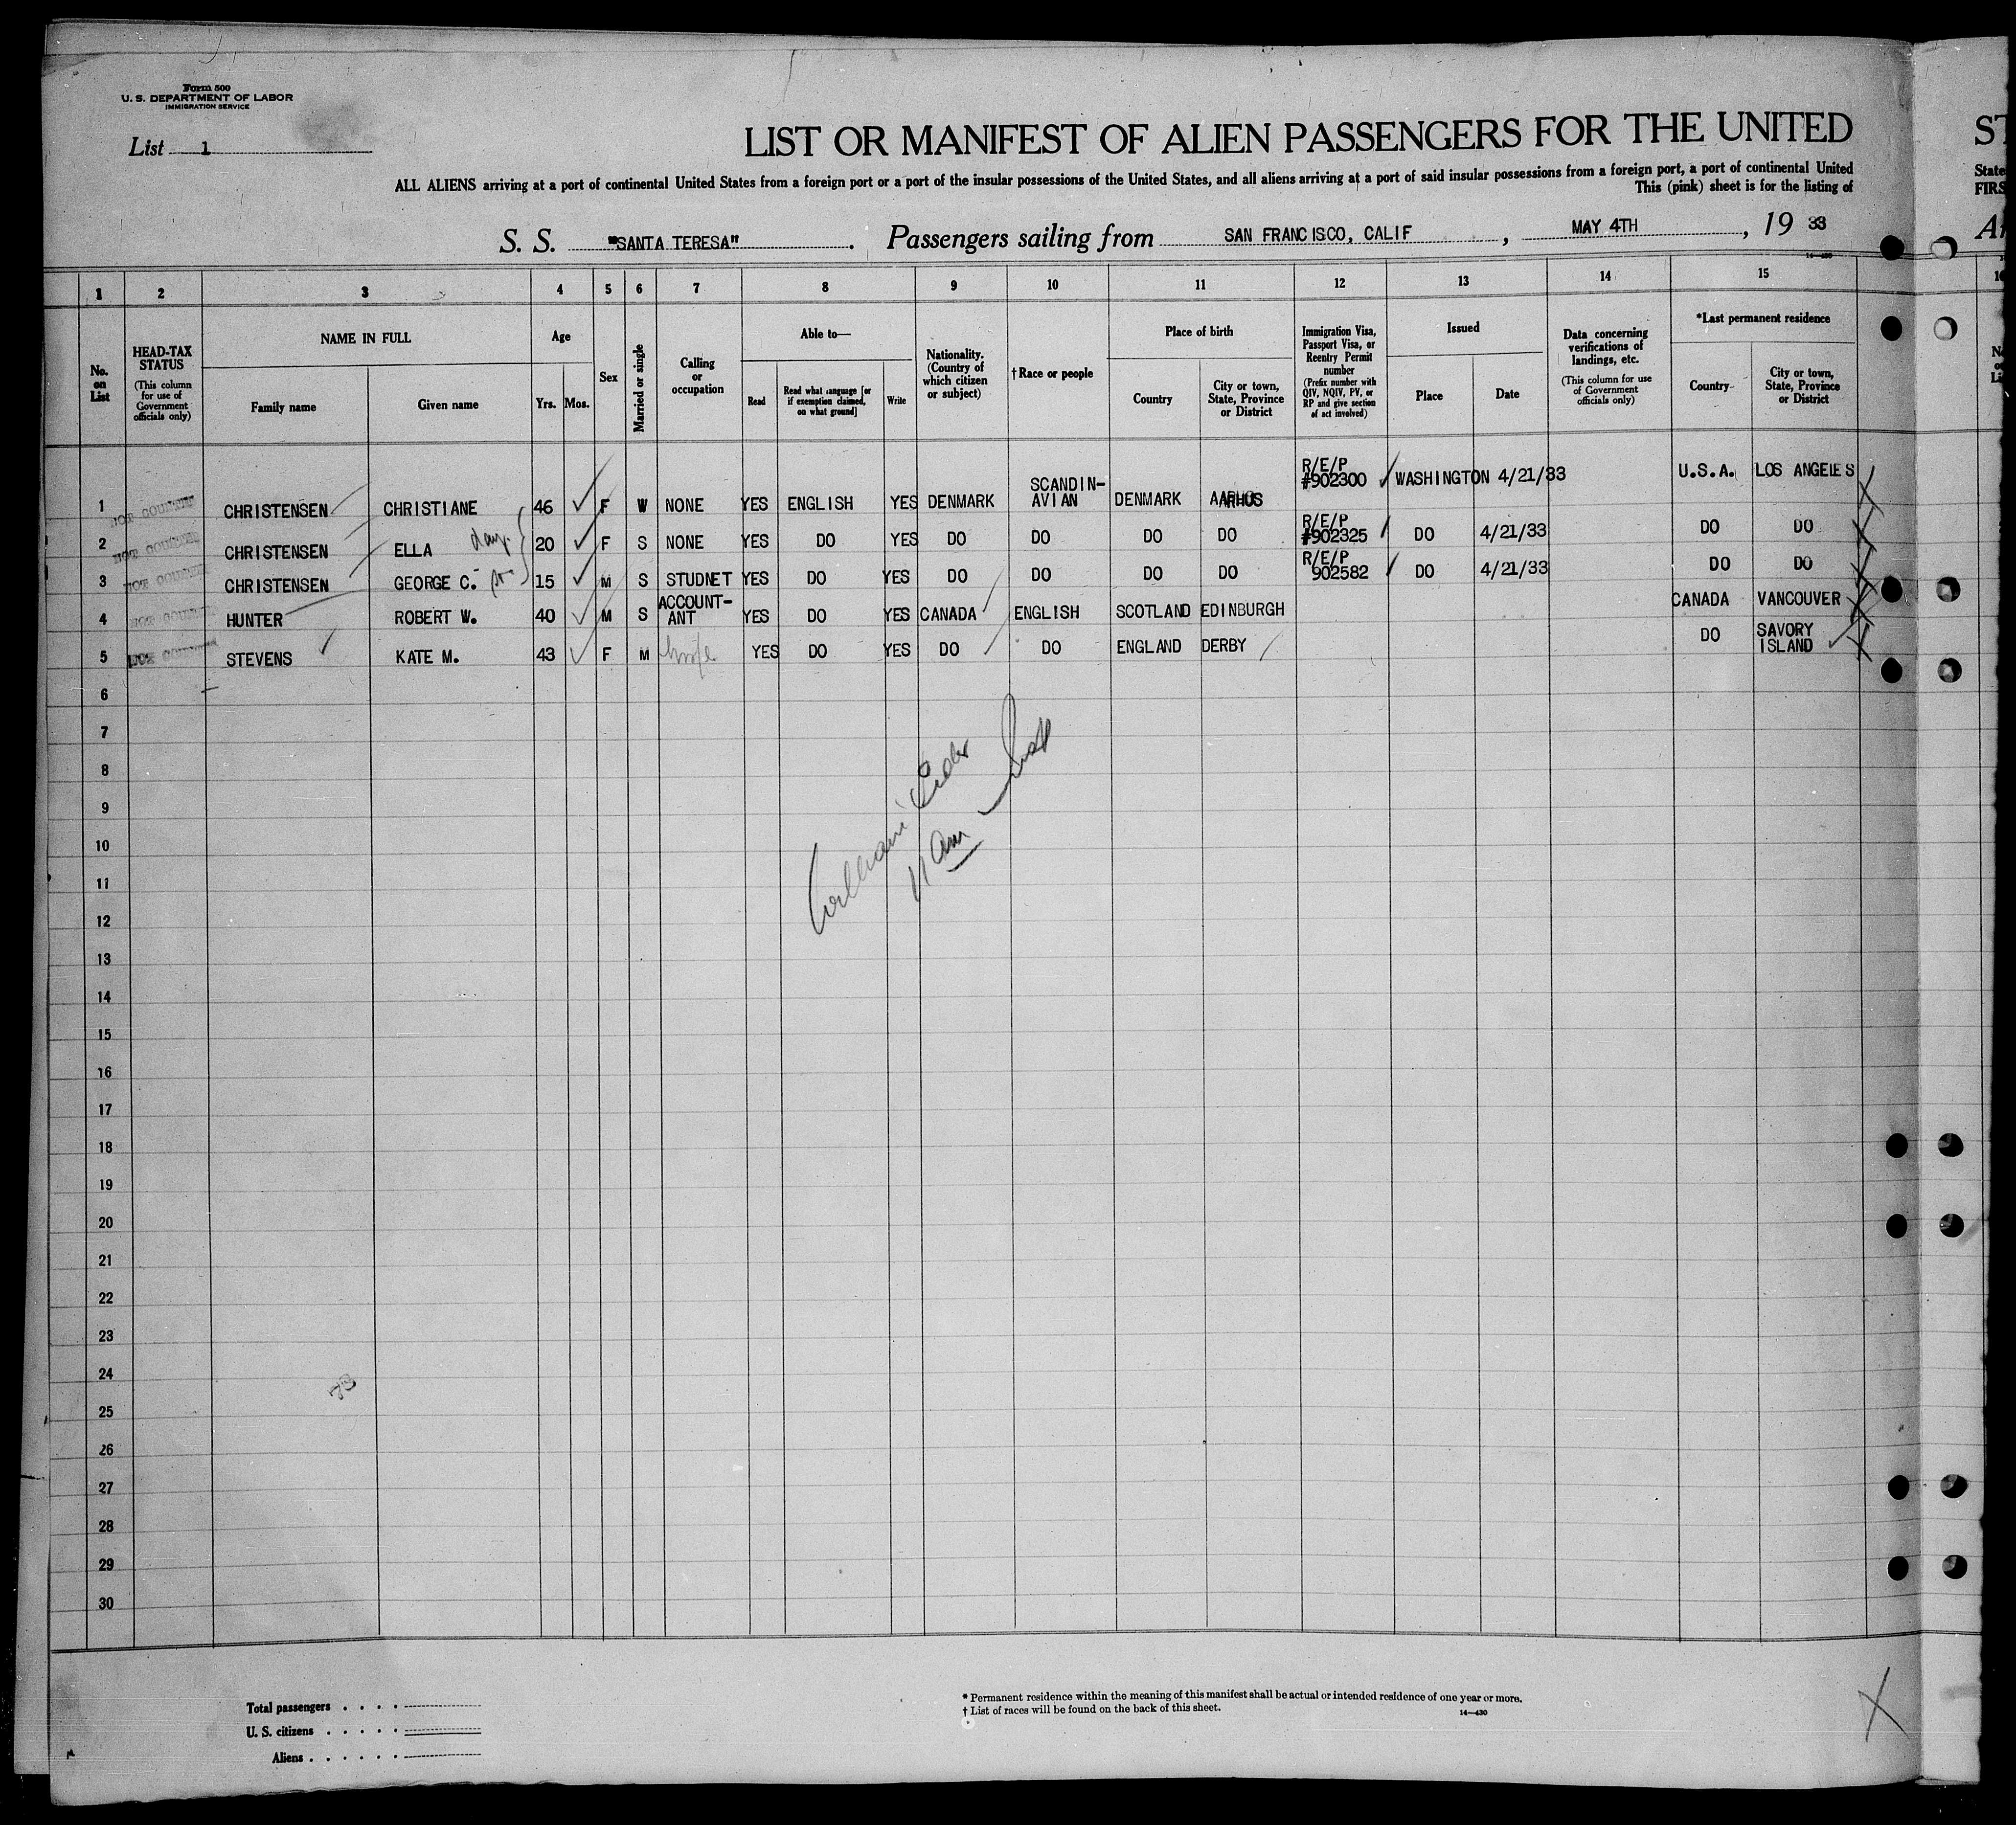 Form 500
U. S. DEPARTMENT OF LABOR
IMMIGRATION SERVICE
List 1
LIST OR MANIFEST OF ALIEN PASSENGERS FOR THE UNITED
ST
ALL ALIENS arriving at a port of continental United States from a foreign port or a port of the insular possessions of the United States, and all aliens arriving at a port of said insular possessions from a foreign port, a port of continental United
State
This (pink) sheet is for the listing of
FIRS
S. S. "SANTA TERESA". Passengers sailing from SAN FRANCISCO, CALIF, MAY 4TH, 19 33
14—430
1 2 3 4 5 6 7 8 9 10 11 12 13 14 15
No. on List
HEAD-TAX STATUS
(This column for use of Government officials only)
NAME IN FULL
Family name
Given name
Age
Yrs. Mos.
Sex
Married or single
Calling or occupation
Able to—
Read
Read what language [or if exemption claimed, on what ground]
Write
Nationality. (Country of which citizen or subject)
†Race or people
Place of birth
Country
City or town, State, Province or District
Immigration Visa, Passport Visa, or Reentry Permit number
(Prefix number with QIV, NQIV, PV, or RP and give section of act involved)
Issued
Place
Date
Data concerning verifications of landings, etc.
(This column for use of Government officials only)
*Last permanent residence
Country
City or town, State, Province or District
1 NOT COUNTED CHRISTENSEN CHRISTIANE 46 F W NONE YES ENGLISH YES DENMARK SCANDIN-AVIAN DENMARK AARHUS R/E/P #902300 WASHINGTON 4/21/33 U.S.A. LOS ANGELES
2 NOT COUNTED CHRISTENSEN ELLA dau. 20 F S NONE YES DO YES DO DO DO DO R/E/P #902325 DO 4/21/33 DO DO
3 NOT COUNTED CHRISTENSEN GEORGE C. 15 M S STUDNET YES DO YES DO DO DO DO R/E/P 902582 DO 4/21/33 DO DO
4 NOT COUNTED HUNTER ROBERT W. 40 M S ACCOUNT-ANT YES DO YES CANADA ENGLISH SCOTLAND EDINBURGH CANADA VANCOUVER
5 NOT COUNTED STEVENS KATE M. 43 F M wife YES DO YES DO DO ENGLAND DERBY DO SAVORY ISLAND
6
7
8
9
10
11
12
13
14
15
16
17
18
19
20
21
22
23
24
25
26
27
28
29
30
11 am
Total passengers
U. S. citizens
Aliens
* Permanent residence within the meaning of this manifest shall be actual or intended residence of one year or more.
† List of races will be found on the back of this sheet.
14—430